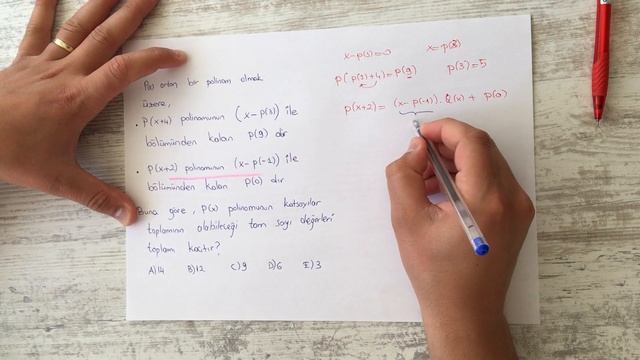 P(x) artan bir polinom olmak
üzere,
• P(x+4) polinomunun (x-P(3)) ile
bölümünden kalan P(9) dır
• P(x+2) polinomunun (x-P(-1)) ile
bölümünden kalan P(0) dır
Buna göre, P(x) polinomunun katsayılar
toplamının alabileceği tam sayı değerleri
toplamı kaçtır?
A)14 B)12 C)9 D)6 E)3
x-P(3)=0 x=P(3)
P(P(3)+4)=P(9) P(3)=5
P(x+2)= (x-P(-1)). Q(x) + P(0)